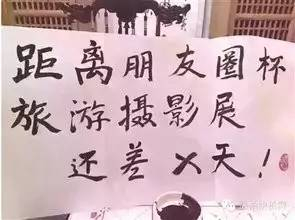 距离朋友圈杯
旅游摄影展
还差X天！